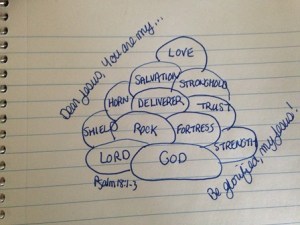 Dear Jesus, you are my...
LOVE
SALVATION
STRONGHOLD
HORN
DELIVERER
TRUST
SHIELD
ROCK
FORTRESS
STRENGTH
LORD
GOD
Psalm 18:1-3
Be glorified, my Jesus!